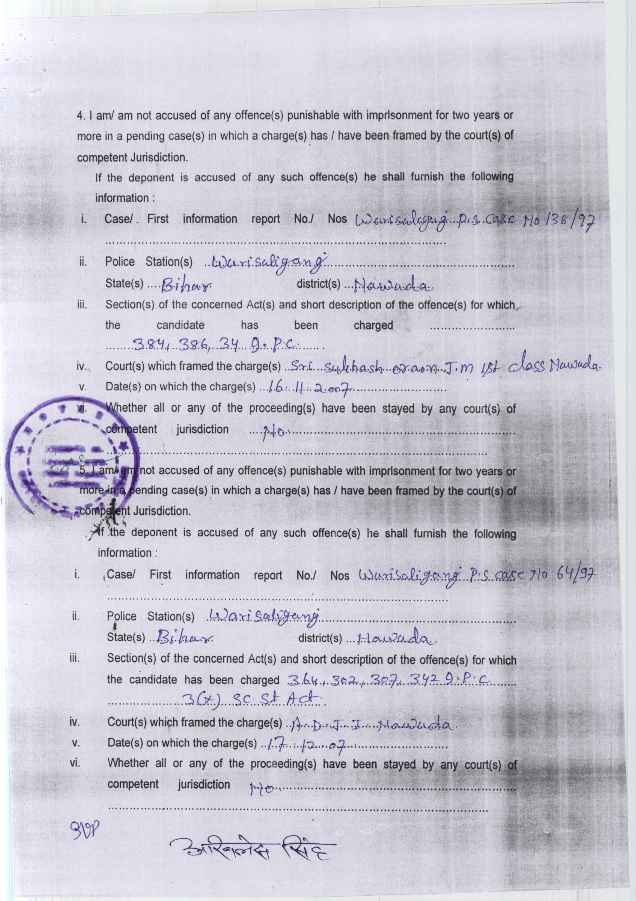 4. I am/ am not accused of any offence(s) punishable with imprisonment for two years or
more in a pending case(s) in which a charge(s) has / have been framed by the court(s) of
competent Jurisdiction.
If the deponent is accused of any such offence(s) he shall furnish the following
information :
i. Case/. First information report No./ Nos Warisaligang P.S. Case No 138/97
ii. Police Station(s) ..Warisaligang
State(s) ....Bihar district(s) ...Nawada
iii. Section(s) of the concerned Act(s) and short description of the offence(s) for which
the candidate has been charged ......................
384, 386, 34 I.P.C.
iv. Court(s) which framed the charge(s) Sri Subhash J.M 1st class Nawada
v. Date(s) on which the charge(s) ..16.11.2007
vi. Whether all or any of the proceeding(s) have been stayed by any court(s) of
competent jurisdiction No
5. I am/ am not accused of any offence(s) punishable with imprisonment for two years or
more in a pending case(s) in which a charge(s) has / have been framed by the court(s) of
competent Jurisdiction.
If the deponent is accused of any such offence(s) he shall furnish the following
information :
i. Case/ First information report No./ Nos Warisaligang P.S. case No 64/97
ii. Police Station(s) ..Warisaligang
State(s) ..Bihar district(s) ...Nawada
iii. Section(s) of the concerned Act(s) and short description of the offence(s) for which
the candidate has been charged 364, 302, 307, 342 I.P.C
3(x) SC St Act
iv. Court(s) which framed the charge(s) A.D.J. I Nawada
v. Date(s) on which the charge(s) ..17.12.07
vi. Whether all or any of the proceeding(s) have been stayed by any court(s) of
competent jurisdiction No
अखिलेश सिंह